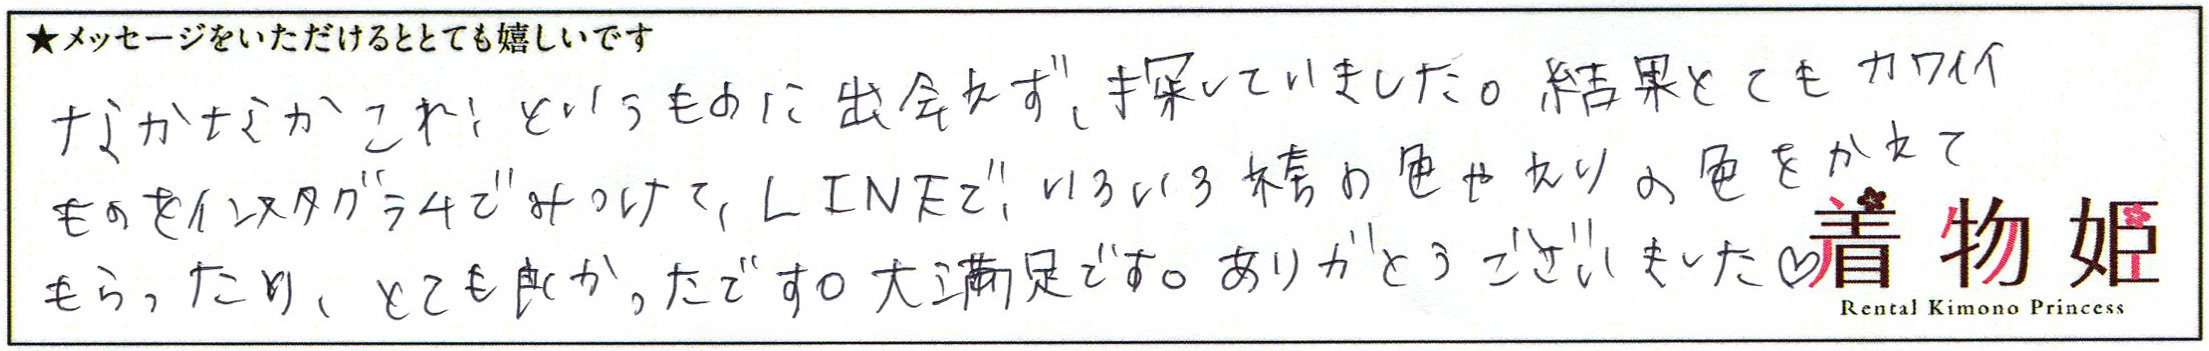 ★メッセージをいただけるととても嬉しいです
なかなかこれ!というものに出会えず、探していました。結果とてもカワイイ
ものをインスタグラムでみつけて、LINEで、いろいろ袴の色やえりの色をかえて
もらったため、とても良かったです。大満足です。ありがとうございました♡
着物姫
Rental Kimono Princess